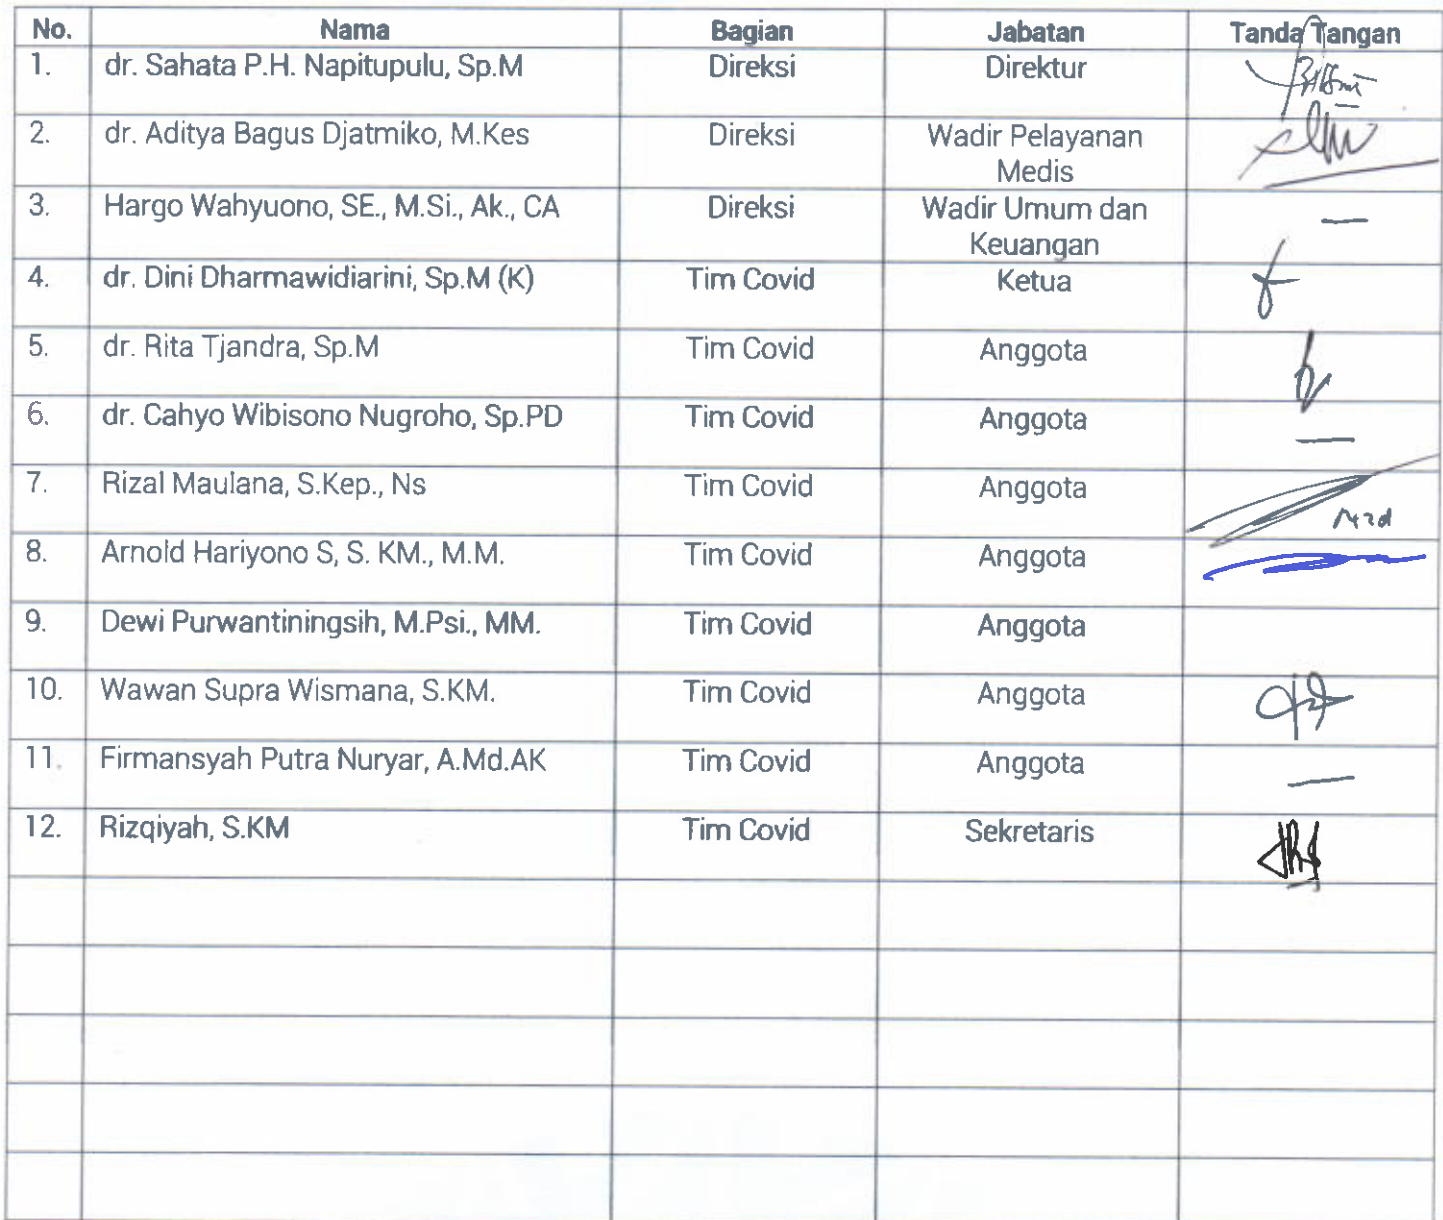 No. Nama Bagian Jabatan Tanda Tangan
1. dr. Sahata P.H. Napitupulu, Sp.M Direksi Direktur
2. dr. Aditya Bagus Djatmiko, M.Kes Direksi Wadir Pelayanan
Medis
3. Hargo Wahyuono, SE., M.Si., Ak., CA Direksi Wadir Umum dan
Keuangan
4. dr. Dini Dharmawidiarini, Sp.M (K) Tim Covid Ketua
5. dr. Rita Tjandra, Sp.M Tim Covid Anggota
6. dr. Cahyo Wibisono Nugroho, Sp.PD Tim Covid Anggota
7. Rizal Maulana, S.Kep., Ns Tim Covid Anggota
8. Arnold Hariyono S, S. KM., M.M. Tim Covid Anggota
9. Dewi Purwantiningsih, M.Psi., MM. Tim Covid Anggota
10. Wawan Supra Wismana, S.KM. Tim Covid Anggota
11. Firmansyah Putra Nuryar, A.Md.AK Tim Covid Anggota
12. Rizqiyah, S.KM Tim Covid Sekretaris